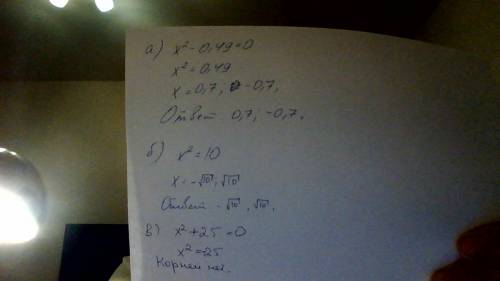 а) x²-0,49=0
x²=0,49
x=0,7; -0,7.
Ответ 0,7; -0,7.
б) x²=10
x=-√10; √10
Ответ -√10, √10.
в) x²+25=0
x²=-25
Корней нет.